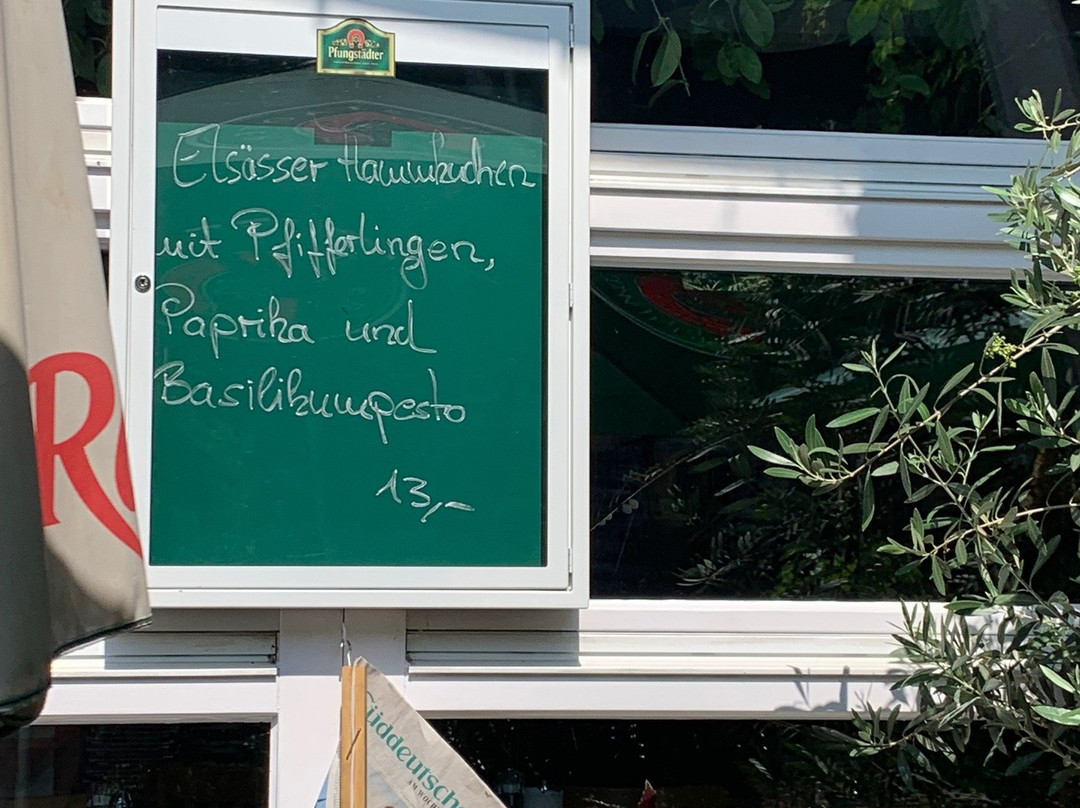 Pfungstädter
Elsässer Flammkuchen
mit Pfifferlingen,
Paprika und
Basilikumpesto
13,-
R
Süddeutsche